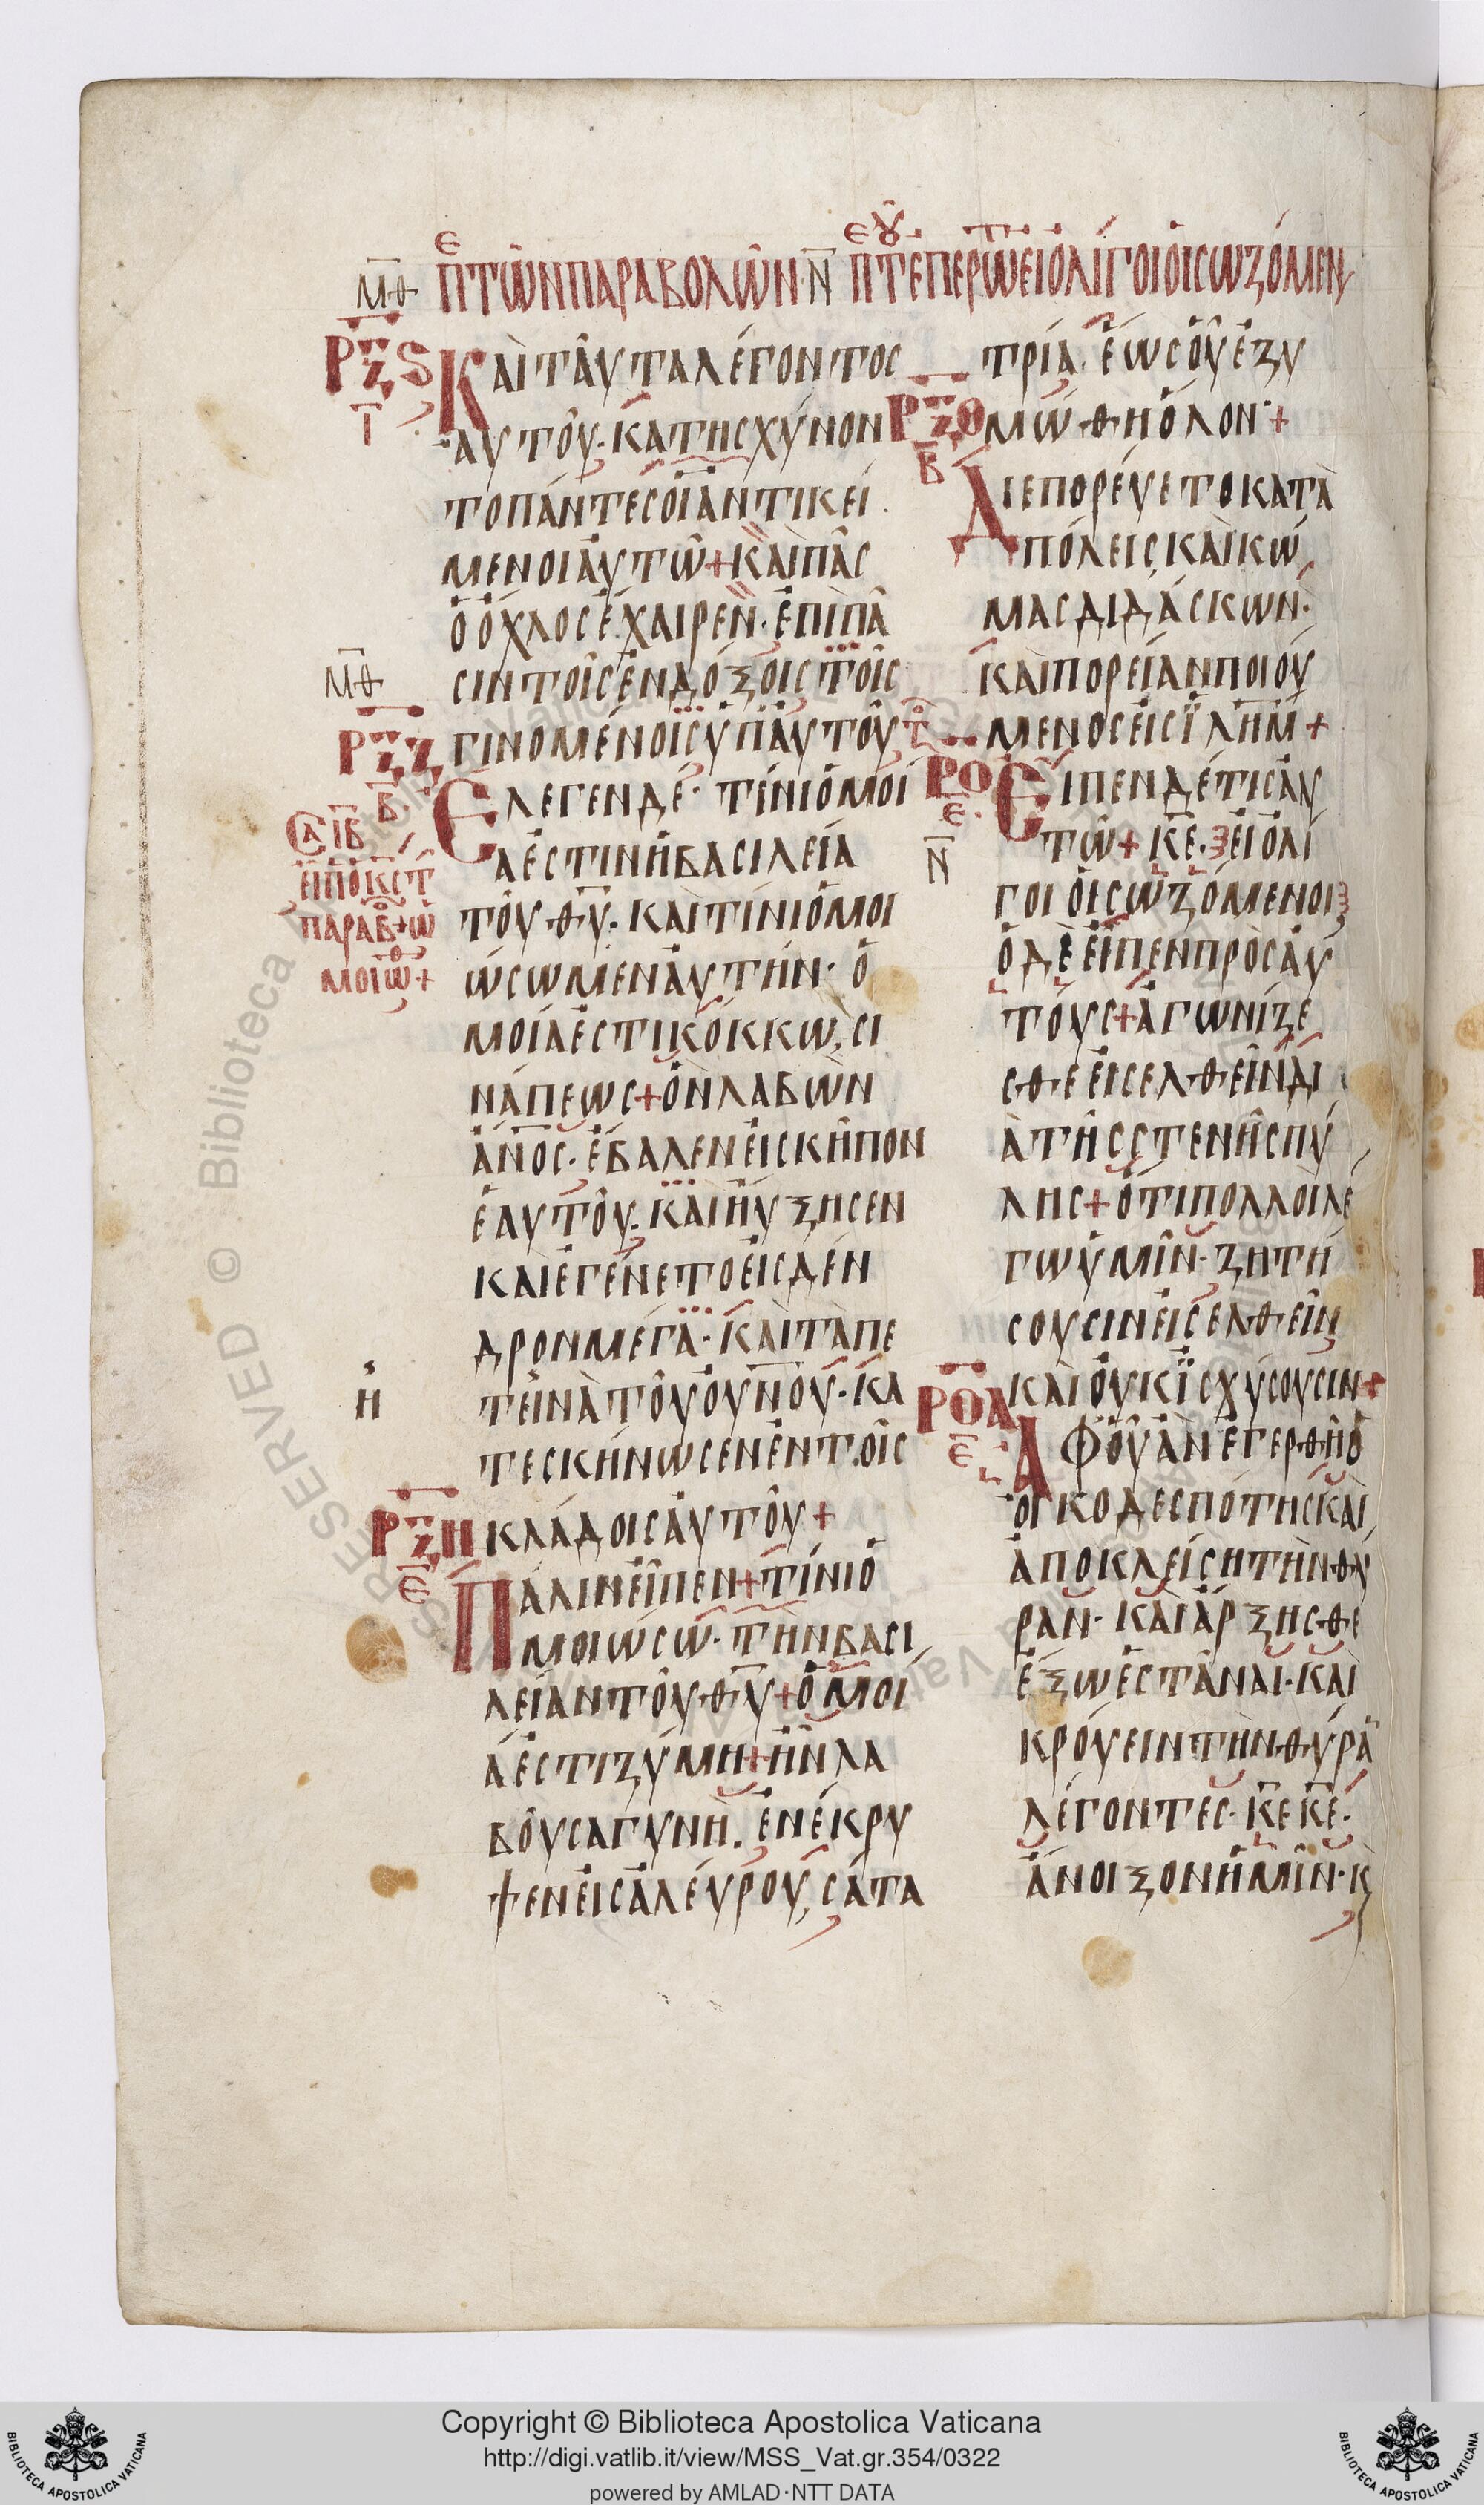 ΜΘ ΠΤῶΝ ΠΑΡΑΒΟΛῶΝ· Ν ΠΤ ἘΠΕΡΩ ΕΙ ΟΛΙΓΟΙ ΟΙ ΣΩΖΟΜΕΝ
ΡΞϚ
Ι
ΚΑῚ ΤΑῦΤΑ ΛΕΓΟΝΤΟΣ
ΑΥΤΟῦ· ΚΑΤΗΣΧΥΝΟΝ
ΤΟ ΠΑΝΤΕΣ ΟΙ ΑΝΤΙΚΕΙ
ΜΕΝΟΙ ΑΥΤῶ + ΚΑΙ ΠΑΣ
Ο ΟΧΛΟΣ ΕΧΑΙΡΕΝ· ΕΠΙ ΠΑ
ΣΙΝ ΤΟΙΣ ΕΝΔΟΞΟΙΣ ΤΟΙΣ
ΓΙΝΟΜΕΝΟΙΣ ΥΠ ΑΥΤΟΥ
ΜΘ
ΡΞΖ
Β
ΕΛΕΓΕΝ ΔΕ· ΤΙΝΙ ΟΜΟΙ
Α ΕΣΤΙΝ Η ΒΑΣΙΛΕΙΑ
ΤΟΥ ΘΥ· ΚΑΙ ΤΙΝΙ ΟΜΟΙ
ΩΣΩΜΕΝ ΑΥΤΗΝ· Ο
ΜΟΙΑ ΕΣΤΙ ΚΟΚΚΩ, ΣΙ
ΝΑΠΕΩΣ + ΟΝ ΛΑΒΩΝ
ΑΝΟΣ· ΕΒΑΛΕΝ ΕΙΣ ΚΗΠΟΝ
ΕΑΥΤΟΥ· ΚΑΙ ΗΥΞΗΣΕΝ
ΚΑΙ ΕΓΕΝΕΤΟ ΕΙΣ ΔΕΝ
ΔΡΟΝ ΜΕΓΑ· ΚΑΙ ΤΑ ΠΕ
ΤΕΙΝΑ ΤΟΥ ΟΥΝΟΥ· ΚΑ
ΤΕΣΚΗΝΩΣΕΝ ΕΝ ΤΟΙΣ
ΚΛΑΔΟΙΣ ΑΥΤΟΥ +
ΡΞΗ
Ε
ΠΑΛΙΝ ΕΙΠΕΝ + ΤΙΝΙ Ο
ΜΟΙΩΣΩ· ΤΗΝ ΒΑΣΙ
ΛΕΙΑΝ ΤΟΥ ΘΥ + ΟΜΟΙ
Α ΕΣΤΙ ΖΥΜΗ + ΗΝ ΛΑ
ΒΟΥΣΑ ΓΥΝΗ. ΕΝΕΚΡΥ
ΨΕΝ ΕΙΣ ΑΛΕΥΡΟΥ, ΣΑΤΑ
ΤΡΙΑ· ΕΩΣ ΟΥ ΕΖΥ
ΜΩΘΗ ΟΛΟΝ +
ΡΞΘ
Β
ΔΙΕΠΟΡΕΥΕΤΟ ΚΑΤΑ
ΠΟΛΕΙΣ, ΚΑΙ ΚΩ
ΜΑΣ ΔΙΔΑΣΚΩΝ·
ΚΑΙ ΠΟΡΕΙΑΝ ΠΟΙΟΥ
ΜΕΝΟΣ ΕΙΣ ΙΛΗΜ +
ΡΟ
Ε
Ν
ΕΙΠΕΝ ΔΕ ΤΙΣ ΑΥ
ΤΩ + ΚΕ· ΕΙ ΟΛΙ
ΓΟΙ ΟΙ ΣΩΖΟΜΕΝΟΙ
Ο ΔΕ ΕΙΠΕΝ ΠΡΟΣ ΑΥ
ΤΟΥΣ + ΑΓΩΝΙΖΕ
ΣΘΕ ΕΙΣΕΛΘΕΙΝ ΔΙ
Α ΤΗΣ ΣΤΕΝΗΣ ΠΥ
ΛΗΣ + ΟΤΙ ΠΟΛΛΟΙ ΛΕ
ΓΩ ΥΜΙΝ· ΖΗΤΗ
ΣΟΥΣΙΝ ΕΙΣΕΛΘΕΙΝ
ΚΑΙ ΟΥΚ ΙΣΧΥΣΟΥΣΙΝ +
ΡΟΑ
Ε
ΑΦ ΟΥ ΑΝ ΕΓΕΡΘΗ Ο
ΟΙΚΟΔΕΣΠΟΤΗΣ ΚΑΙ
ΑΠΟΚΛΕΙΣΗ ΤΗΝ ΘΥ
ΡΑΝ· ΚΑΙ ΑΡΞΗΣΘΕ
ΕΞΩ ΕΣΤΑΝΑΙ· ΚΑΙ
ΚΡΟΥΕΙΝ ΤΗΝ ΘΥΡΑ
ΛΕΓΟΝΤΕΣ· ΚΕ ΚΕ·
ΑΝΟΙΞΟΝ ΗΜΙΝ· Κ
Copyright © Biblioteca Apostolica Vaticana
http://digi.vatlib.it/view/MSS_Vat.gr.354/0322
powered by AMLAD·NTT DATA